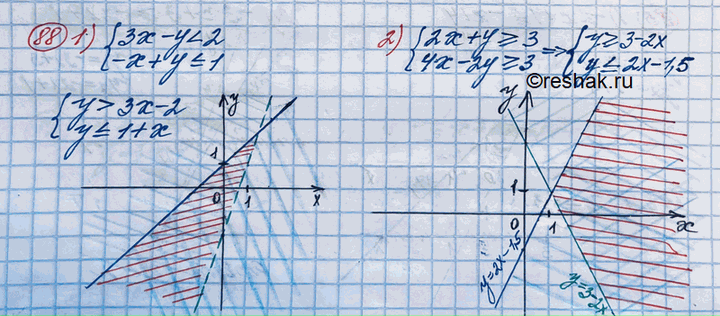 88 1) { 3x - y < 2
{ -x + y ≤ 1
{ y > 3x - 2
{ y ≤ 1 + x
y
1
0 1 x
2) { 2x + y ≥ 3 => { y ≥ 3 - 2x
{ 4x - 2y ≥ 3 { y ≤ 2x - 1,5
©reshak.ru
y
1
0 1 x
y = 2x - 1,5
y = 3 - 2x